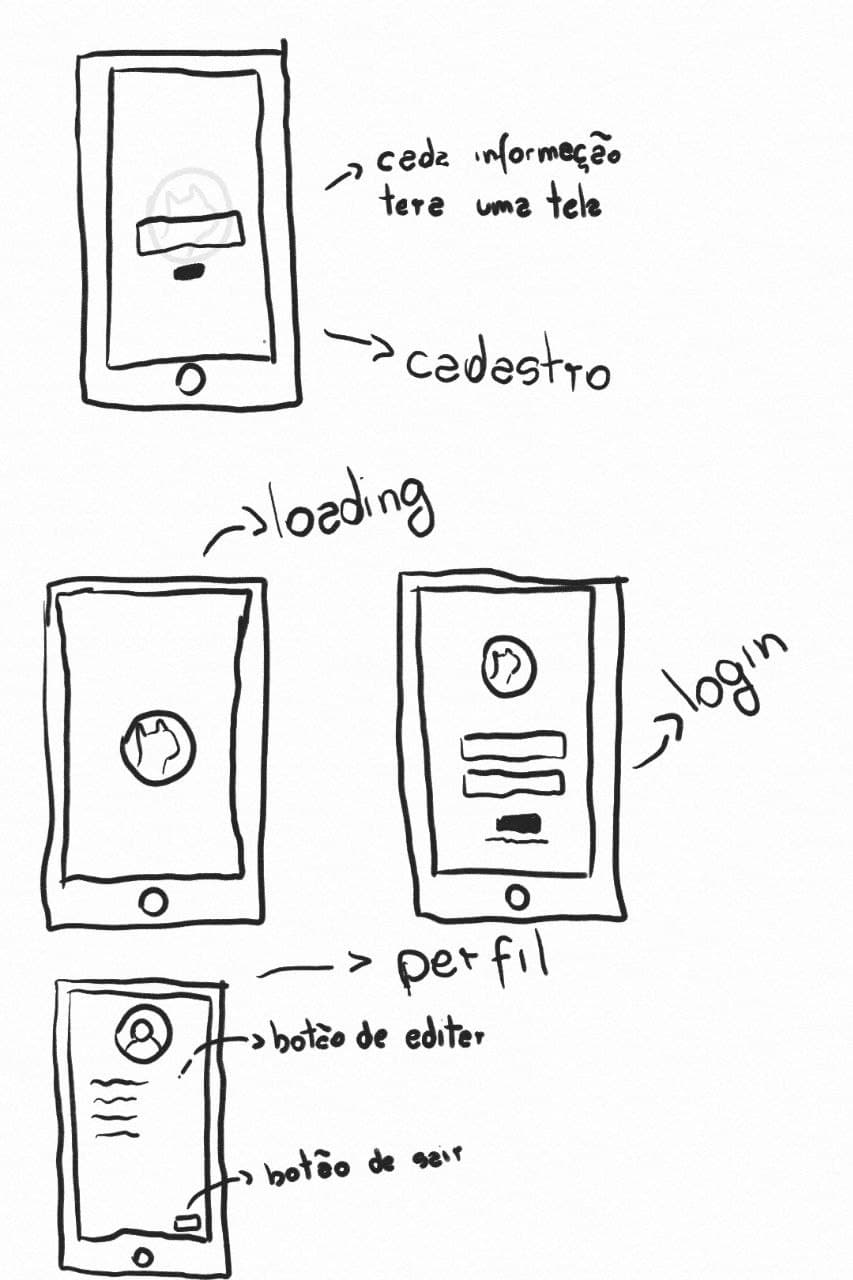 cada informação
tera uma tela
cadastro
loading
login
perfil
botão de editar
botão de sair